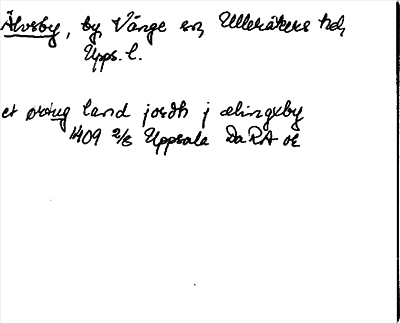 Älvsby, by, Vänge sn, Ulleråkers hd,
Upps. l.
et ørtug land jordh j ælingxby
1409 2/6 Uppsala DaRA or